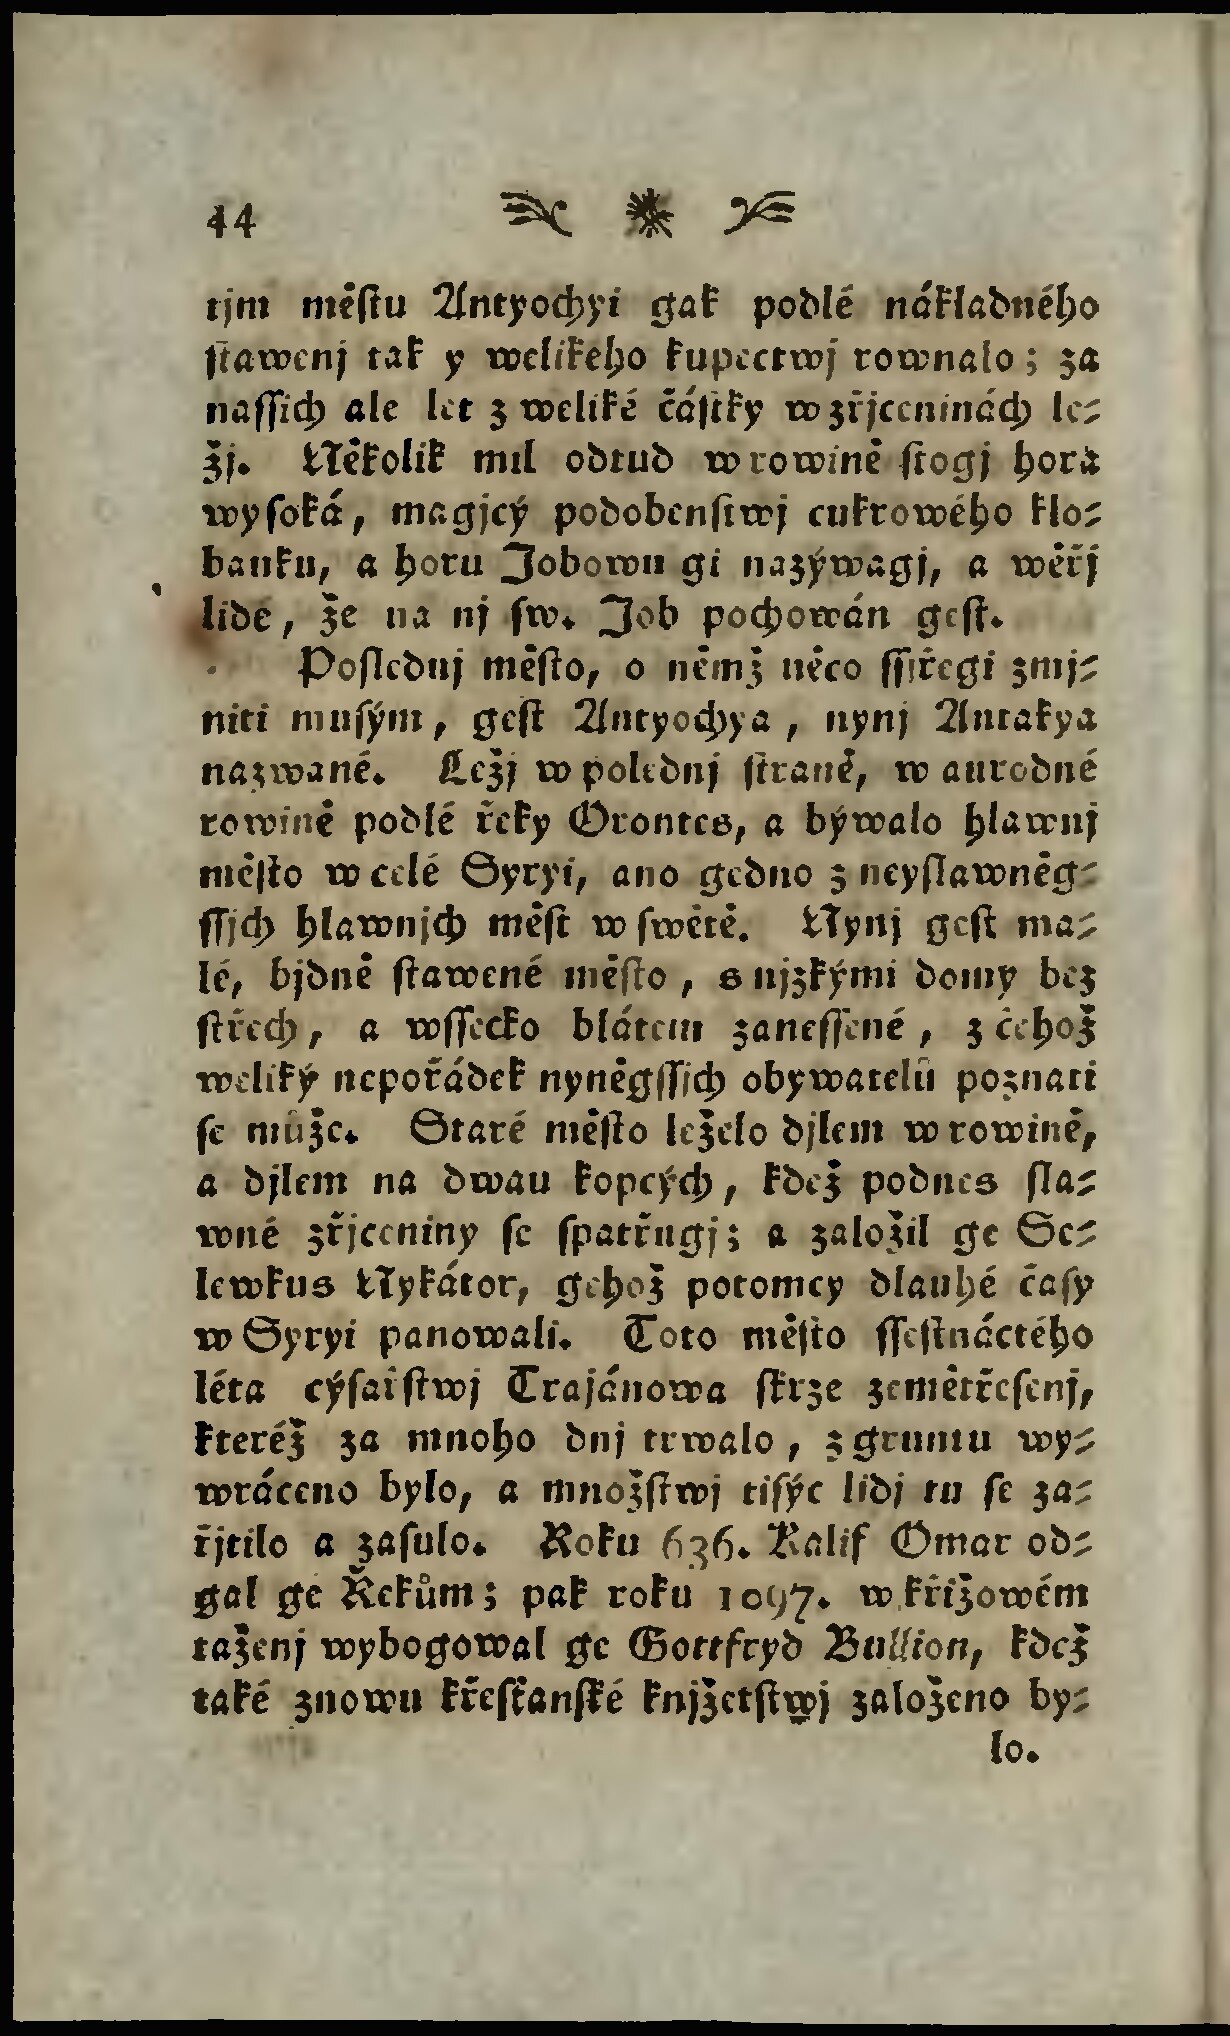 44
tjm měſtu Antyochyi gak podlé nákladného
ſtawenj tak y welikeho kupectwj rownalo; za
naſſich ale let z weliké částky w zřjceninách le⸗
žj. Několik mil odtud w rowině ſtogj hora
wyſoká, magjcý podobenſtwj cukrowého klo⸗
bauku, a horu Jobowu gi nazýwagj, a wěřj
lidé, že na nj ſw. Job pochowán geſt.
Poſlednj měſto, o němž něco ſſjřegi zmj⸗
niti muſým, geſt Antyochya, nynj Antakya
nazwané. Ležj w polednj ſtraně, w aurodné
rowině podlé řeky Orontes, a býwalo hlawnj
měſto w celé Syryi, ano gedno z neyſlawněg⸗
ſſjch hlawnjch měſt w ſwětě. Nynj geſt ma⸗
lé, bjdně ſtawené měſto, s njzkými domy bez
ſtřech, a wſſecko blátem zaneſſené, z čehož
weliký nepořádek nyněgſſjch obywatelů poznati
ſe může. Staré měſto leželo djlem w rowině,
a djlem na dwau kopcých, kdež podnes ſla⸗
wné zřjceniny ſe ſpatřugj; a založil ge Se⸗
lewkus Nykátor, gehož potomcy dlauhé čaſy
w Syryi panowali. Toto měſto ſſeſtnáctého
léta cýſařſtwj Trajánowa ſkrze zemětřeſenj,
kteréž za mnoho dnj trwalo, z gruntu wy⸗
wráceno bylo, a množſtwj tiſýc lidj tu ſe za⸗
řjtilo a zaſulo. Roku 636. Kalif Omar od⸗
gal ge Řekům; pak roku 1097. w křižowém
taženj wybogowal ge Gottfryd Bullion, kdež
také znowu křeſťanſké knjžetſtwj založeno by⸗
lo.